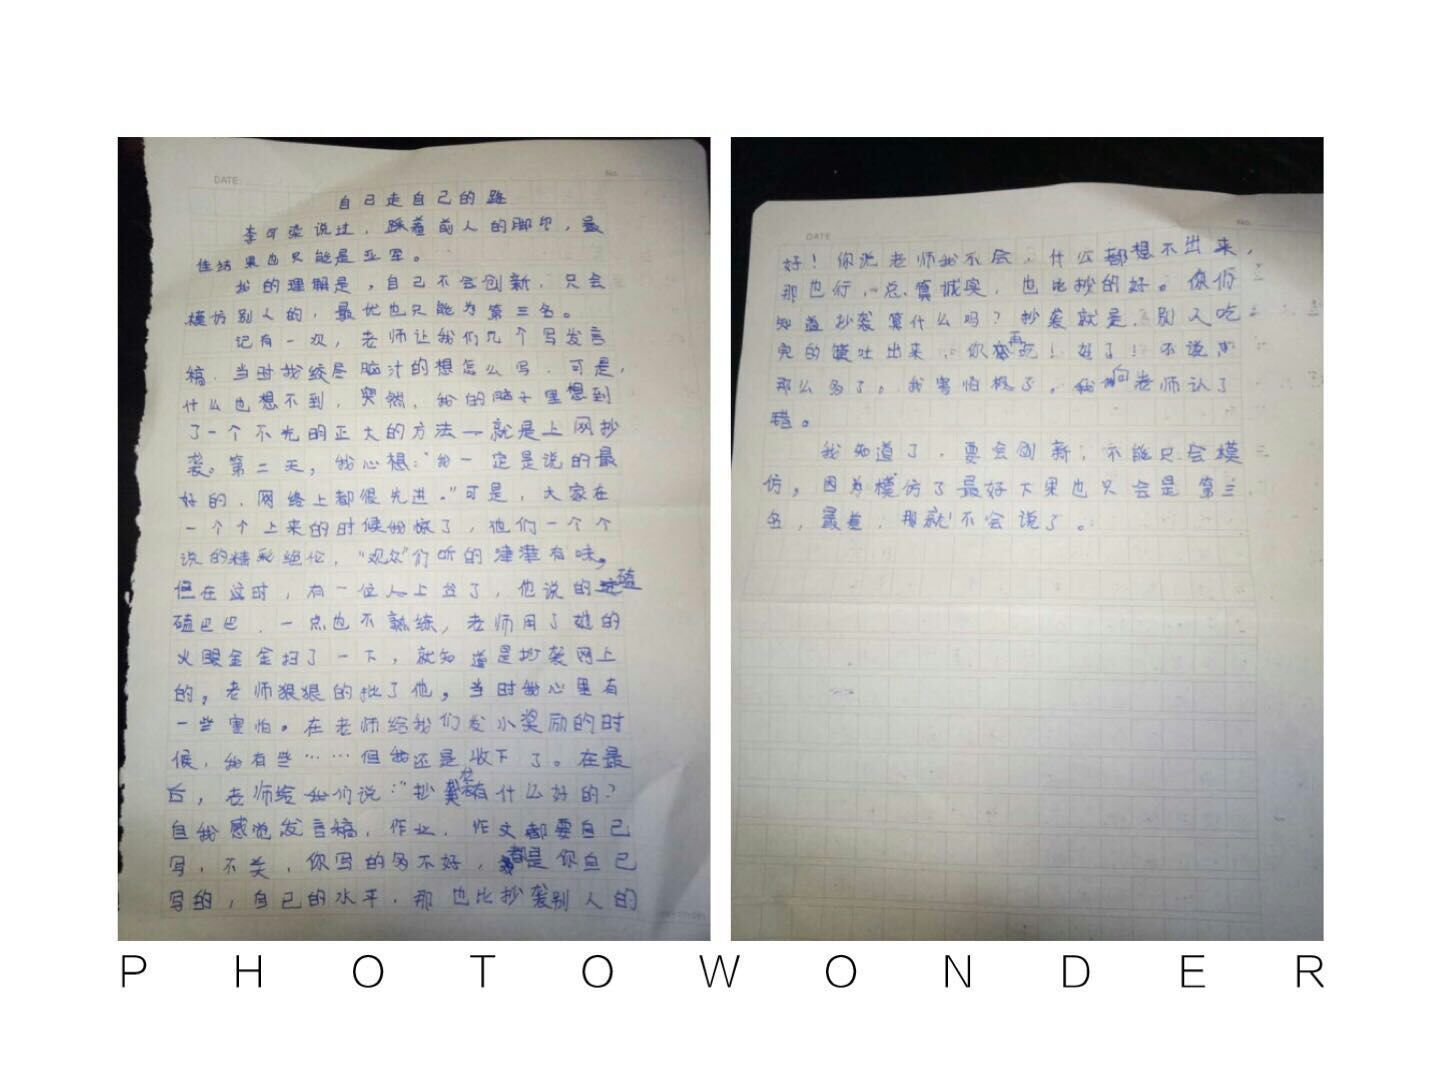 DATE:
No.
自己走自己的路
李可染说过，踩着前人的脚印，最
佳结果也只能是亚军。
我的理解是，自己不会创新，只会
模仿别人的，最优也只能为第三名。
记有一次，老师让我们几个写发言
稿，当时我绞尽脑汁的想怎么写，可是，
什么也想不到，突然，我的脑子里想到
了一个不光明正大的方法—就是上网抄
袭。第二天，我心想：“我一定是说的最
好的，网络上都很先进。”可是，大家在
一个个上来的时候我惊了，他们一个个
说的精彩绝伦，“观众”们听的津津有味。
但在这时，有一位人上台了，他说的磕
磕巴巴，一点也不熟练，老师用了她的
火眼金金扫了一下，就知道是抄袭网上
的，老师狠狠的批了他，当时我心里有
一些害怕。在老师给我们发小奖励的时
候，我有些……但我还是收下了。在最
后，老师给我们说：“抄袭有什么好的？
自我感觉发言稿，作业，作文都要自己
写，不关，你写的多不好，都是你自己
写的，自己的水平，那也比抄袭别人的
DATE
No.
好！你说老师我不会，什么都想不出来，
那也行，总算诚实，也比抄的好。你们
知道抄袭算什么吗？抄袭就是，别人吃
完的馍吐出来，你再吃！好了！不说
那么多了。我害怕极了，我向老师认了
错。
我知道了，要会创新，不能只会模
仿，因为模仿了最好下果也只会是第三
名，最差，那就不会说了。
PHOTOWONDER